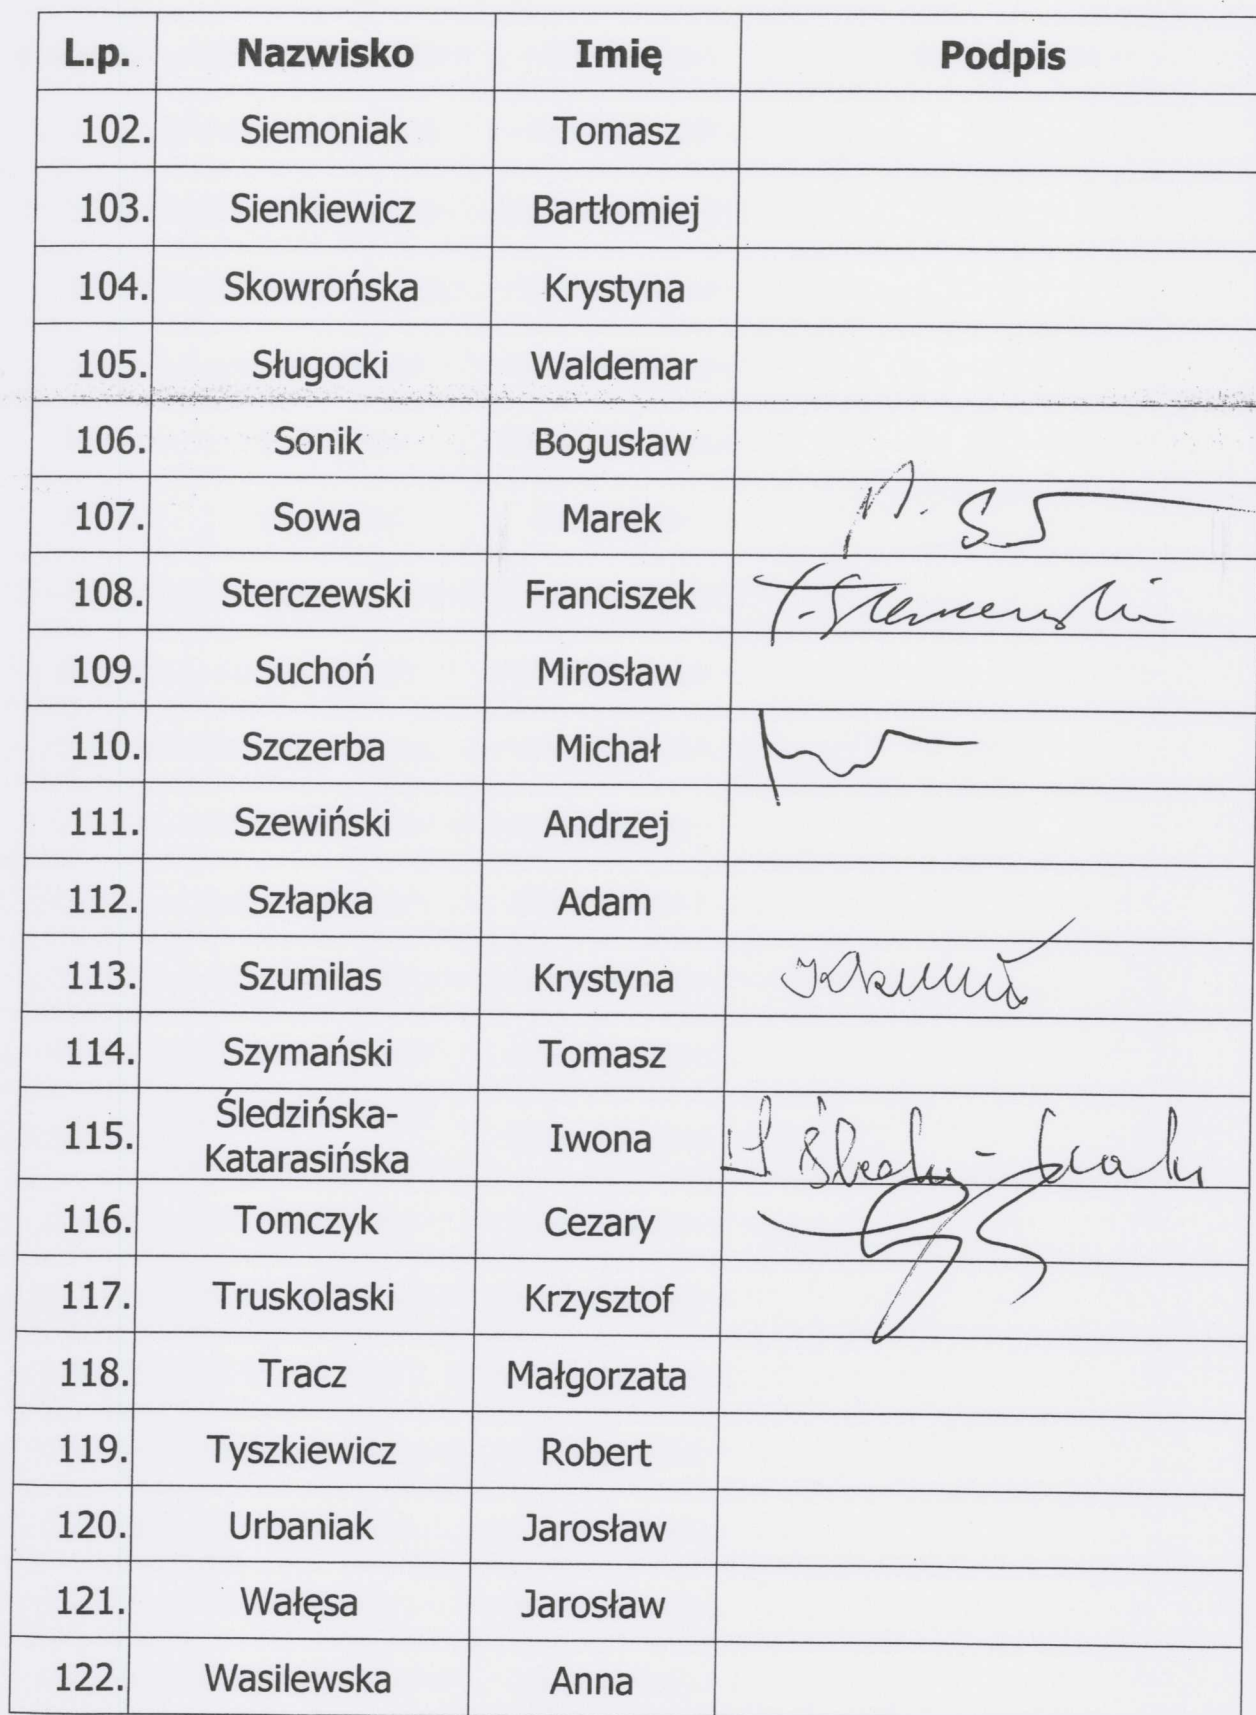 L.p. Nazwisko Imię Podpis
102. Siemoniak Tomasz
103. Sienkiewicz Bartłomiej
104. Skowrońska Krystyna
105. Sługocki Waldemar
106. Sonik Bogusław
107. Sowa Marek
108. Sterczewski Franciszek
109. Suchoń Mirosław
110. Szczerba Michał
111. Szewiński Andrzej
112. Szłapka Adam
113. Szumilas Krystyna
114. Szymański Tomasz
Śledzińska-
115. Iwona
Katarasińska
116. Tomczyk Cezary
117. Truskolaski Krzysztof
118. Tracz Małgorzata
119. Tyszkiewicz Robert
120. Urbaniak Jarosław
121. Wałęsa Jarosław
122. Wasilewska Anna